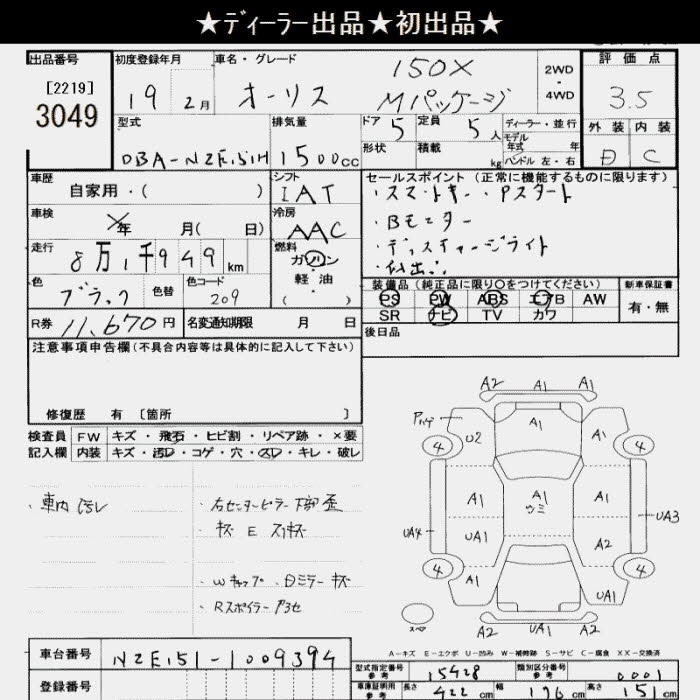 ★ディーラー出品★初出品★
出品番号
[2219]
3049
初度登録年月
19 2月
車名・グレード
オーリス
150X
Mパッケージ
2WD
4WD
評価点
3.5
外装 内装
D C
型式
DBA-NZE151H
排気量
1500cc
ドア 5
定員 5人
形状
積載 kg
ディーラー・並行
モデル年式 年
ハンドル 左・右
車歴
自家用・( )
シフト
IAT
セールスポイント(正常に機能するものに限ります)
・スマートキー・Pスタート
・Bモニター
・ディスチャージライト
・初出品
車検
年 月( 日)
冷房
AAC
走行
8万1千949km
燃料
ガソリン
軽油
( )
色
ブラック
色替
色コード
209
装備品(純正品に限り○をつけてください)
PS PW ABS エアB AW
SR ナビ TV カワ
新車保証書
有・無
R券 11,670円
名変通知期限 月 日
後日品
注意事項申告欄(不具合内容等は具体的に記入して下さい)
修復歴 有 [箇所 ]
検査員記入欄
FW キズ・飛石・ヒビ割・リペア跡・×要
内装 キズ・汚レ・コゲ・穴・スレ・キレ・破レ
・車内汚レ
・右センターピラー下部歪
・Wキャップ・Dミラーキズ
・Rスポイラーアスセ
A2 A1 A1
Pハゲ
U2 A1 A1
4 4
A1 A1 ウミ A1
UA4 UA1 A2 UA3
4 4
A1 UA1
スペア
A2 UA1 A2
A-キズ E-エクボ U-凹み W-補修跡 S-サビ C-腐食 XX-交換済
車台番号 NZE151-1009394
登録番号
型式指定番号参考 15428
類別区分番号参考 0001
車庫証明用参考 長さ 422cm 幅 176cm 高さ 151cm